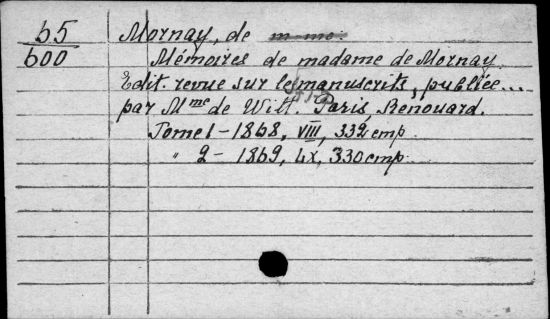 65
600
Mornay, de m-me.
Mémoires de madame de Mornay
Edit. revue sur les manuscrits, publiée...
par Mme de Witt. Paris, Renouard.
Tome 1 - 1868, VIII, 332 стр
" 2 - 1869, LX, 330 стр.